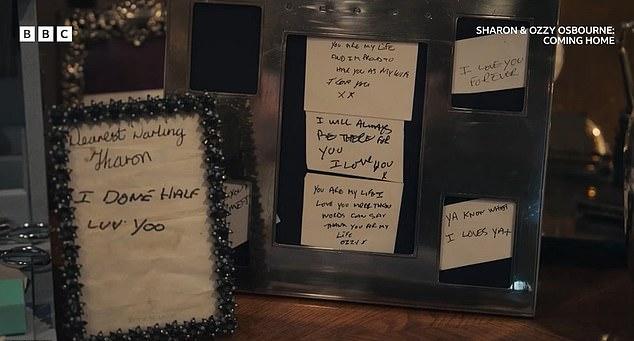 BBC
SHARON & OZZY OSBOURNE:
COMING HOME
Dearest Darling
Sharon
I DONE HALF
LUV YOO
YOU ARE MY LIFE
AND IM PROUD TO
HAVE YOU AS MY WIFE
I Love you
X X
I WILL ALWAYS
BE THERE FOR
YOU
I LOVE YOU
X
YOU ARE MY LIFE I
LOVE YOU MORE THEN
WORDS CAN SAY
THANK YOU FOR MY
LIFE
OZZY X
I LOVE YOU
FOREVER
YA KNOW WHAT
I LOVES YA+
YOU